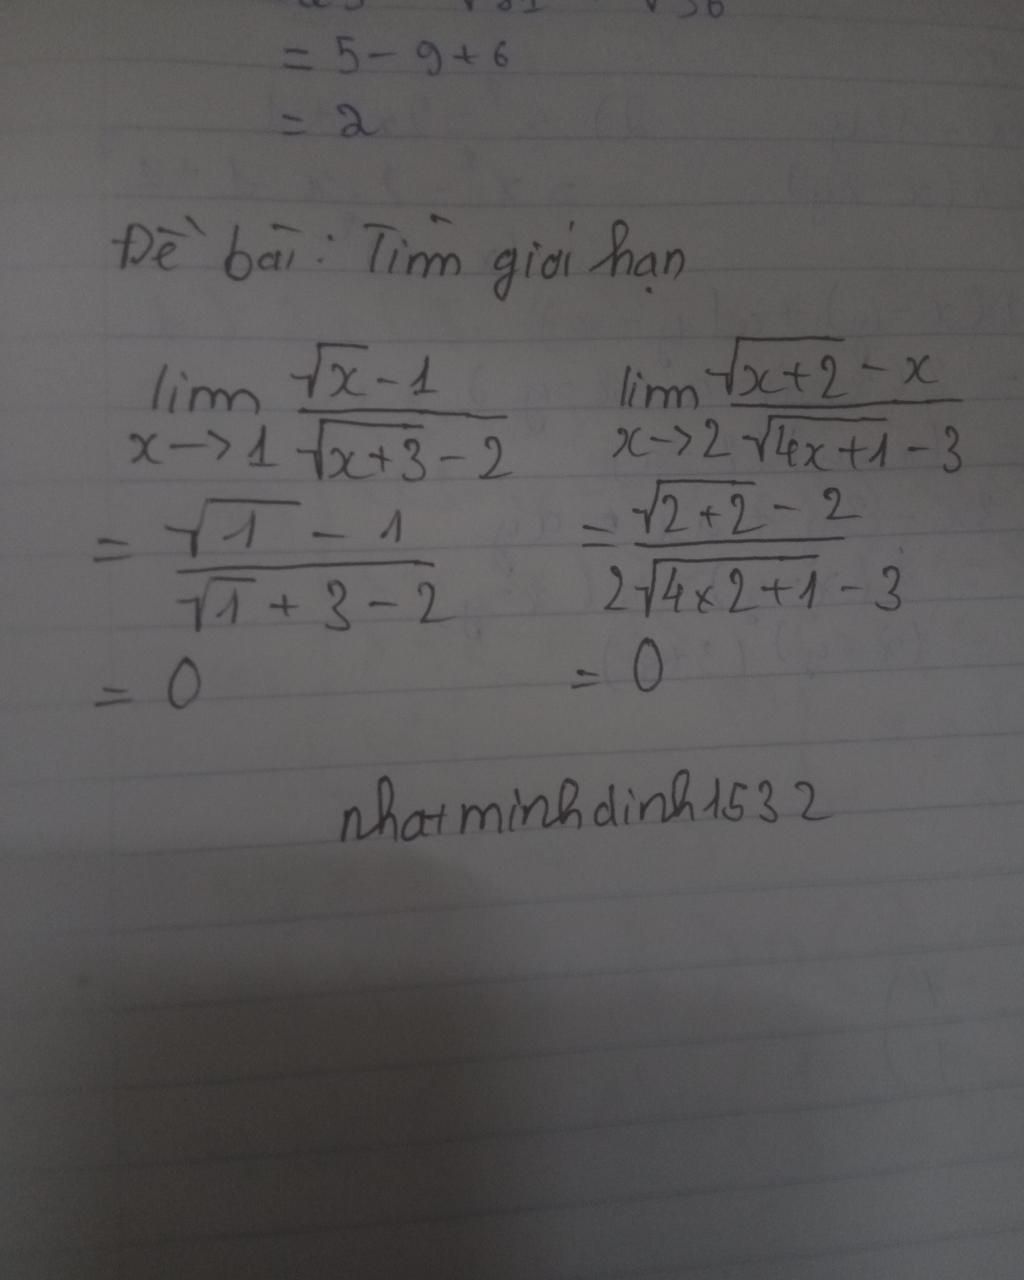 = 5 - 9 + 6
= 2
Đề bài: Tìm giới hạn
lim x->1 (√x - 1)/(√(x+3) - 2)
= (√1 - 1)/(√1 + 3 - 2)
= 0
lim x->2 (√(x+2) - x)/(√(4x+1) - 3)
= (√(2+2) - 2)/(2√(4×2+1) - 3)
= 0
nhatminhdinh1532